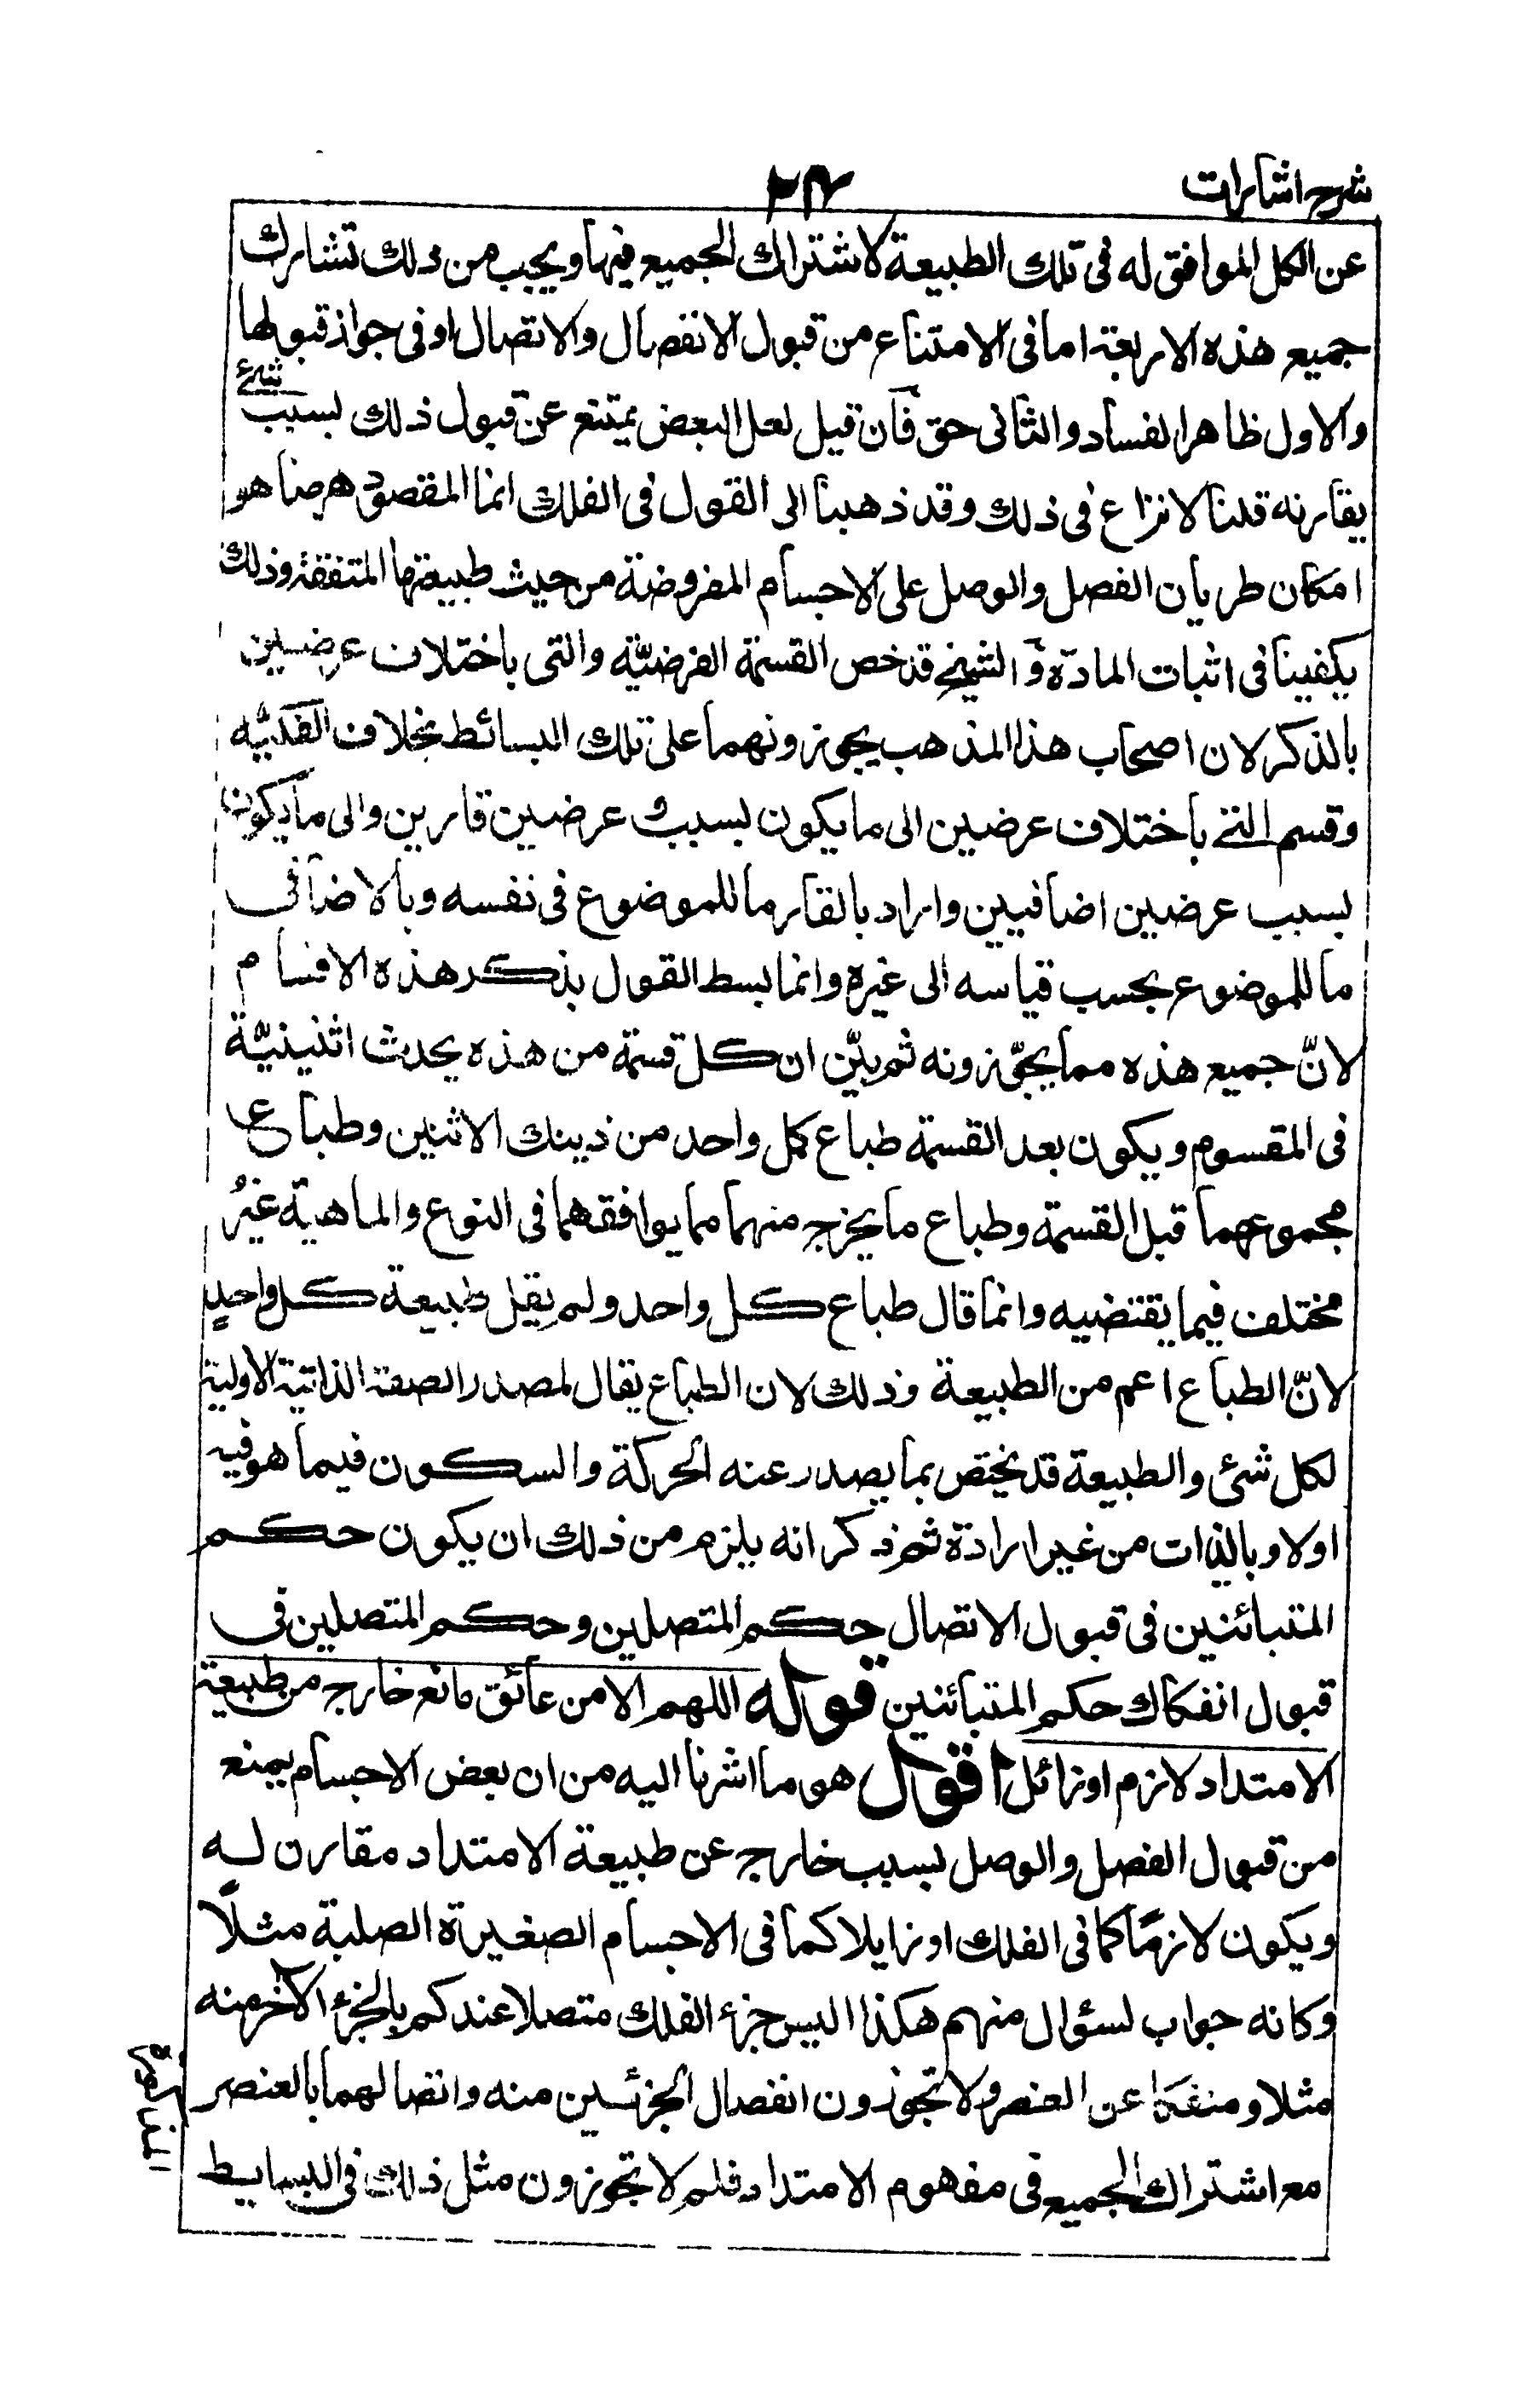 شرح اشارات
٢٣
عن الكل الموافق له فى تلك الطبيعة لاشتراك الجميع فيها ويجب من ذلك تشارك
جميع هذه الاربعة اما فى الامتناع من قبول الانفصال والاتصال او فى جواز قبولها
والاول ظاهر الفساد والثانى حق فان قيل لعل البعض يمتنع عن قبول ذلك بسبب شئ
يقارنه قلنا لا نزاع فى ذلك وقد ذهبنا الى القول فى الفلك انما المقصود ههنا هو
امكان طريان الفصل والوصل على الاجسام المفروضة من حيث طبيعتها المتفقة وذلك
يكفينا فى اثبات المادّة والشيخ قد خص القسمة الفرضيّة والتى باختلاف عرضين
بالذكر لان اصحاب هذا المذهب يجوزونهما على تلك البسائط بخلاف الفكيّه
وقسم التى باختلاف عرضين الى ما يكون بسبب عرضين قارين والى ما يكون
بسبب عرضين اضافيين واراد بالقار ما للموضوع فى نفسه وبالاضافى
ما للموضوع بحسب قياسه الى غيره وانما بسط القول بذكر هذه الاقسام
لانّ جميع هذه مما يجوّزونه ثم بيّن ان كل قسمة من هذه يحدث اثنينيّة
فى المقسوم ويكون بعد القسمة طباع كل واحد من ذينك الاثنين وطباع
مجموعهما قبل القسمة وطباع ما يخرج منهما مما يوافقهما فى النوع والماهية غيرُ
مختلف فيما يقتضيه وانما قال طباع كل واحد ولم يقل طبيعة كل واحدٍ
لانّ الطباع اعم من الطبيعة وذلك لان الطباع يقال لمصدر الصفة الذاتية الاولية
لكل شئ والطبيعة قد يختص بما يصدر عنه الحركة والسكون فيما هو فيه
اولا وبالذات من غير ارادة ثم ذكر انه يلزم من ذلك ان يكون حكم
المتبائنين فى قبول الاتصال حكم المتصلين وحكم المتصلين فى
قبول انفكاك حكم المتبائنين قوله اللهم الا من عائق مانع خارج من طبيعة
الامتداد لازم او زائل اقول هو ما اشرنا اليه من ان بعض الاجسام يمنع
من قبول الفصل والوصل بسبب خارج عن طبيعة الامتداد مقارن له
ويكون لازمًا كما فى الفلك او زايلا كما فى الاجسام الصغيرة الصلبة مثلًا
وكانه جواب لسؤال منهم هكذا اليس جزء الفلك متصلا عندكم بالجزء الآخر منه
مثلا ومنفكا عن العنصر ولا تجوزون انفصال الجزئين منه واتصالهما بالعنصر
مع اشتراك الجميع فى مفهوم الامتداد فلم لا تجوزون مثل ذلك فى البسايط